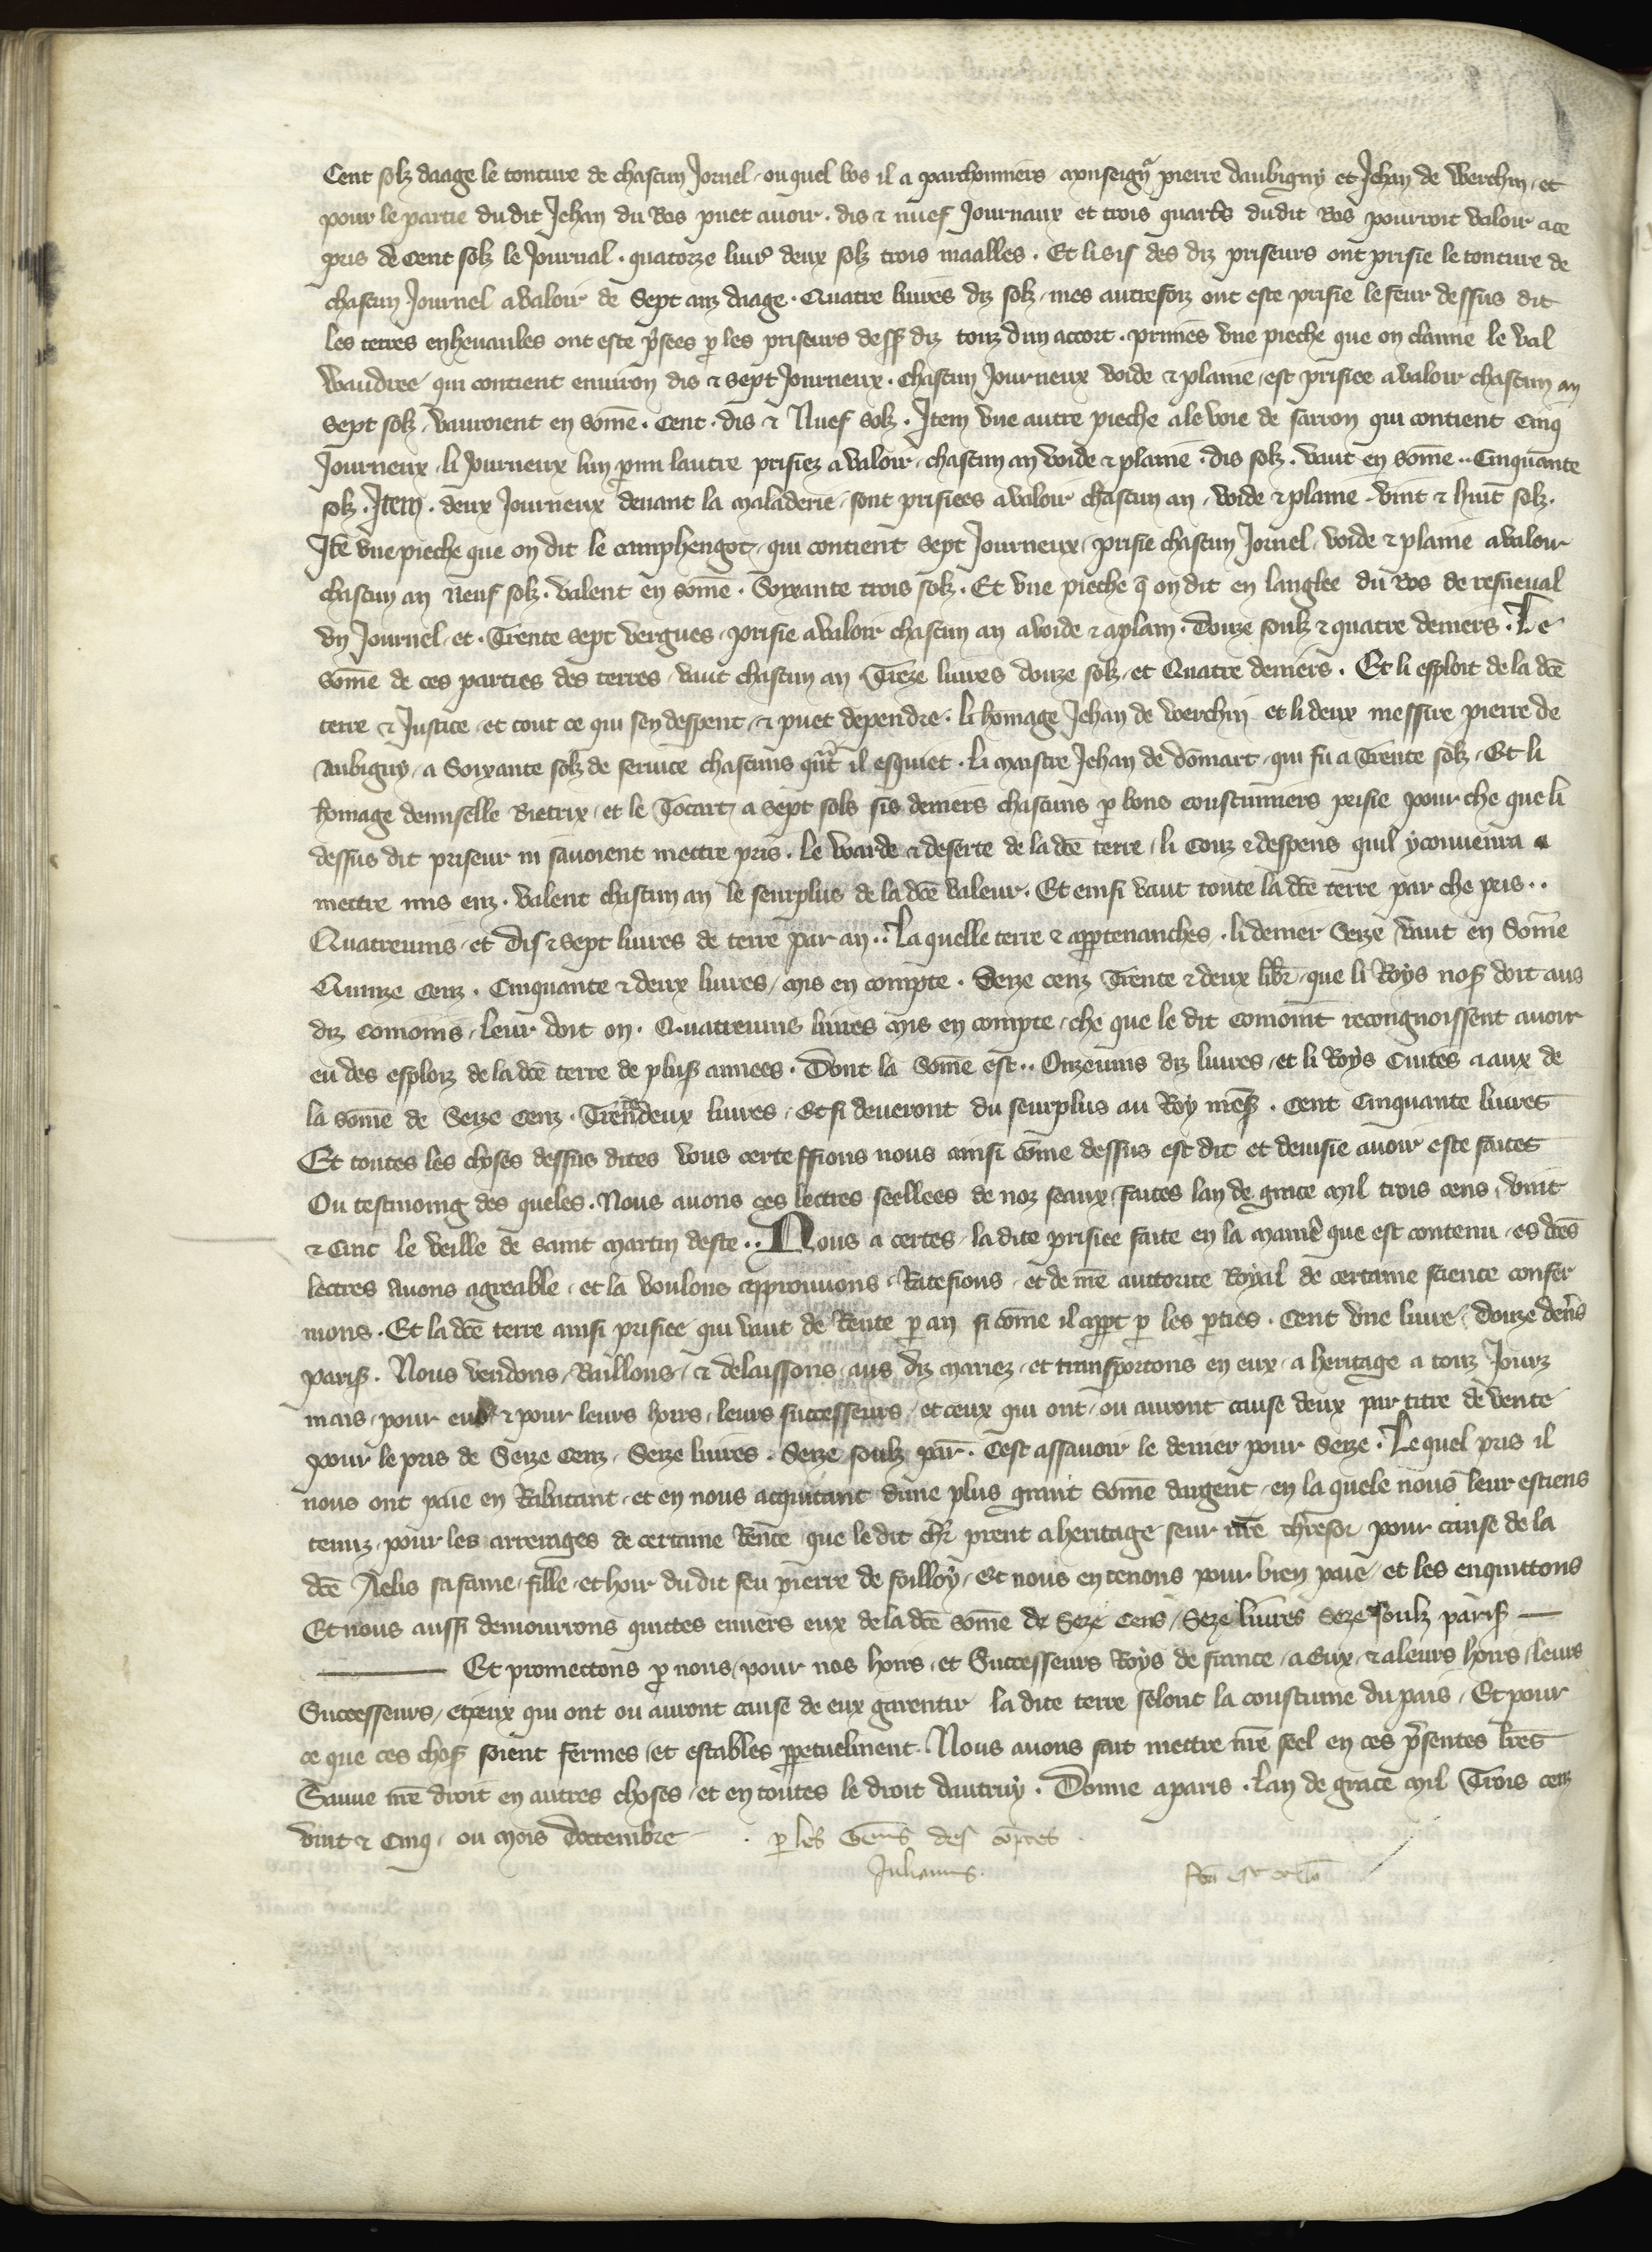 Cent solz daage le tonture de chascun Jornel. ou quel bos il a parchonniers monseignr pierre daubigny et Jehan de Werchin. et
pour le partie du dit Jehan du Bos puet auoir. dis & nuef Journaux et trois quarts dudit Bos pourroit valoir ace
pris de Cent solz le Journal. quatorze liurs deux solz trois maalles. Et li sis des diz priseurs ont prisie le tonture de
chascun Journel a valoir de Sept anz daage. Quatre liures diz solz. mes autresfoiz ont este prisie le feur dessus dit
les terres enheuaules ont este psees p les priseurs dess diz touz dun accort. primes vne pieche que on claime le val
Waudree qui contient enuiron dis & sept Journeux. chascun Journeux voide & plaine est prisiee a valoir chascun an
sept solz. vauroient en some. Cent. dis & Nuef solz. Item vne autre pieche a le voie de sarron qui contient Cinq
Journeux. li Journeux lun pmi lautre prisiez a valoir. chascun an voide & plaine. dis solz. vaut en some.. Cinquante
solz. Item. deux Journeux deuant la maladerie. sont prisiees a valoir chascun an. voide & plaine. vint & huit solz.
Ite vne pieche que on dit le camphengot. qui contient sept Journeux. prisie chascun Jornel. voide & plaine a valoir
chascun an Neuf solz. valent en some. Soixante trois solz. Et vne pieche q on dit en langlee du Bos de refueual
vn Journel. et. Trente sept vergues. prisie a valoir chascun an a voide & a plain. Douze soulz & quatre deniers. Le
some de ces parties des terres. vaut chascun an Treze liures douze solz. et Quatre deniers. Et li esploit de la dce
terre & Justice. et tout ce qui sen despent. & puet dependre. li homage Jehan de Werchin et li deux messire pierre de
Aubigny. a Soixante solz de seruice chascuns qnt il esquiet. li maistre Jehan de domart. qui fu a Trente solz. Et li
homage demiselle Bietrix. et le Tocart a sept sols sis deniers chascuns p bons coustumiers prisie pour che que li
dessus dit priseur ni sauoient mettre pris. le warde & deserte de la dce terre. li Couz & despens quil y conuenra a
mettre mis enz. valent chascun an le seurplus de la dce valeur. Et einsi vaut toute la dce terre par che pris..
Quatreuins. et Dis & sept liures de terre par an.. La quelle terre & apptenanches. li denier Seize vaut en Some
Quinze Cenz. Cinquante & deux liures. mis en compte. Seize cenz Trente & deux libr. que li Roys nos doit aus
diz Comoins. leur doit on. Quatreuins liures mis en compte. che que le dit comoint recongnoissent auoir
eu des esploiz de la dce terre de plus annees. Dont la Some est.. Onzeuins diz liures. et li Roys Cuites a aux de
la some de Seize Cenz. Trente deux liures. Et si deueront du seurplus au Roy mes. Cent Cinquante liures
Et toutes les choses dessus dites vous certeffions nous ainsi come dessus est dit et deuisie auoir este faites
Ou tesmoing des queles. Nous auons ces lettres seellees de noz seaux. faites lan de grace mil trois cens. vint
& Cinc le veille de saint martin deste.. Nous a certes. la dite prisiee faite en la maniere que est contenu. es dces
lectres auons agreable. et la voulons approuuons. Ratefions. et de nre auttorite Royal de certaine science confer
mons. Et la dce terre ainsi prisiee qui vaut de Rente p an si come il appt p les pties. Cent vne liure. Douze deners
paris. Nous vendons. Baillons. & delaissons. aus diz mariez. et transportons en eux. a heritage a touz Jourz
mais. pour eux & pour leurs hoirs. leurs successeurs. et ceux qui ont. ou auront cause deux par titre de vente
pour le pris de Seize Cenz. Seize liures. Seize soulz par. Cest assauoir le denier pour Seize. Le quel pris il
nous ont paie en Rabatant. et en nous acquitant dune plus grant some dargent. en la quele nous leur estiens
tenuz. pour les arrerages de certaine Rente que le dit chr prent a heritage seur nre thresor pour cause de la
dce Aelis sa fame. fille. et hoir du dit feu pierre de soilloy. Et nous en tenons pour bien paie. et les enquittons
Et nous aussi demourrons quittes enuers eux de la dce some de Seze Cens. Seze liures Seze soulz paris —
— Et promettons p nous. pour nos hoirs. et Successeurs Roys de france. a Eux. & a leurs hoirs. leurs
Successeurs. et ceux qui ont ou auront cause de eux garentir la dite terre selont la coustume du pais. Et pour
ce que ces chos soient fermes. et estables ppetuelment. Nous auons fait mettre nre seel en ces psentes lres
Sauue nre droit en autres choses. et en toutes le droit dautruy. Donne a paris. lan de grace mil Trois cenz
vint & Cinq. ou mois Doctembre . p les Gens des coptes.
Julianus.